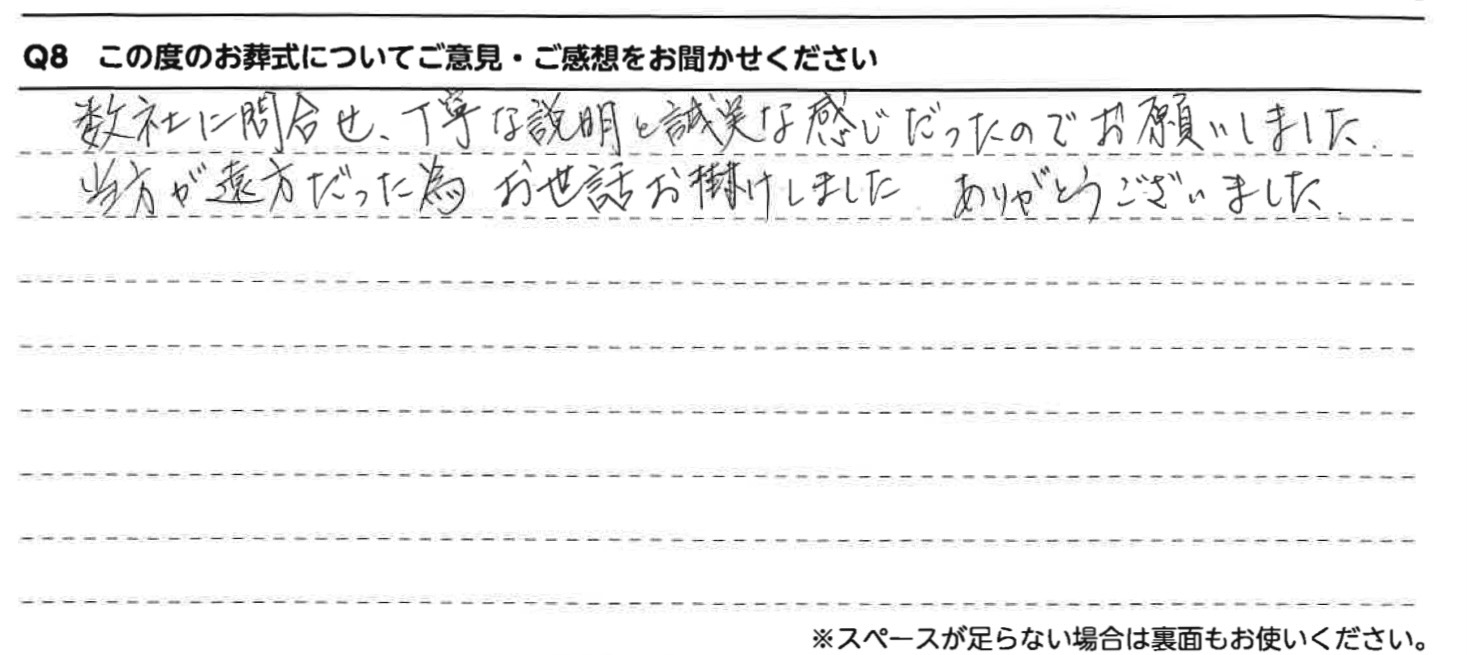 Q8 この度のお葬式についてご意見・ご感想をお聞かせください
数社に問合せ、丁寧な説明と誠実な感じだったのでお願いしました.
当方が遠方だった為 お世話お掛けしました. ありがとうございました.
※スペースが足らない場合は裏面もお使いください。